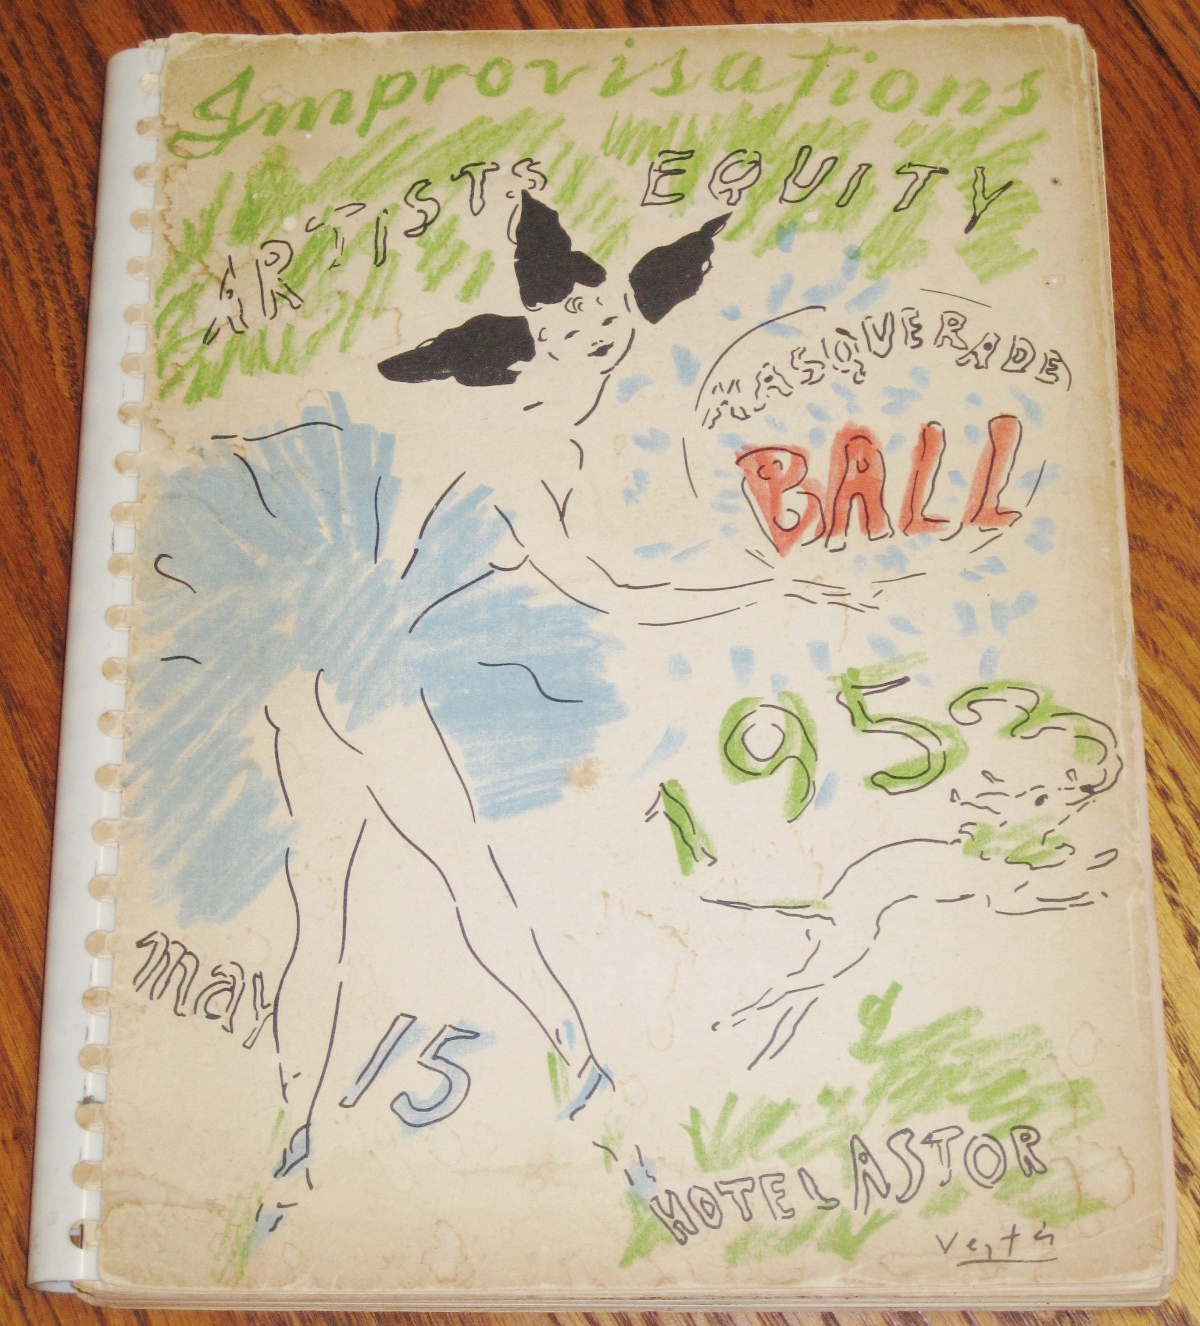 Improvisations
ARTISTS EQUITY
MASQVERADE
BALL
1953
May
15
HOTEL ASTOR
Vertès